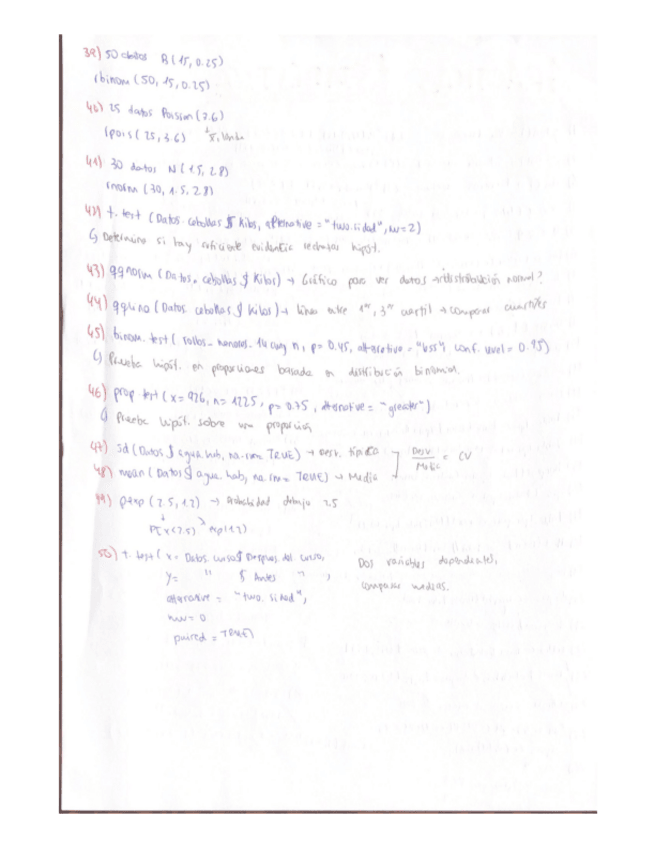 39) 50 datos B(15, 0.25)
rbinom (50, 15, 0.25)
40) 25 datos Poisson (3.6)
rpois (25, 3.6)
41) 30 datos N(1.5, 2.8)
rnorm (30, 1.5, 2.8)
42) t.test (Datos.cebollas $ Kilos, alternative = "two.sided", mu=2)
↳ Determina si hay suficiente evidencia rechazar hipót.
43) qqnorm (Datos.cebollas $ Kilos) → Gráfico para ver datos → distribución normal?
44) qqline (Datos.cebollas $ Kilos) → Línea entre 1er, 3er cuartil → comparar cuantiles
45) binom.test ( n, p= 0.45, alternative = "less", conf.level = 0.95)
↳ Prueba hipót. en proporciones basada en distribución binomial.
46) prop.test (x= 926, n= 1225, p= 0.75, alternative = "greater")
↳ Prueba hipót. sobre una proporción
47) sd (Datos $ agua.hab, na.rm= TRUE) → Desv. típica
48) mean (Datos $ agua.hab, na.rm= TRUE) → Media
Desv. / Media = CV
49) pexp (2.5, 1.2) → Probabilidad debajo 2.5
P[x<2.5] exp(1.2)
50) t.test ( x= Datos.curso$ Despues.del.curso,
y= " $ Antes " ,
alternative = "two.sided",
mu= 0
paired = TRUE)
Dos variables dependientes,
comparar medias.